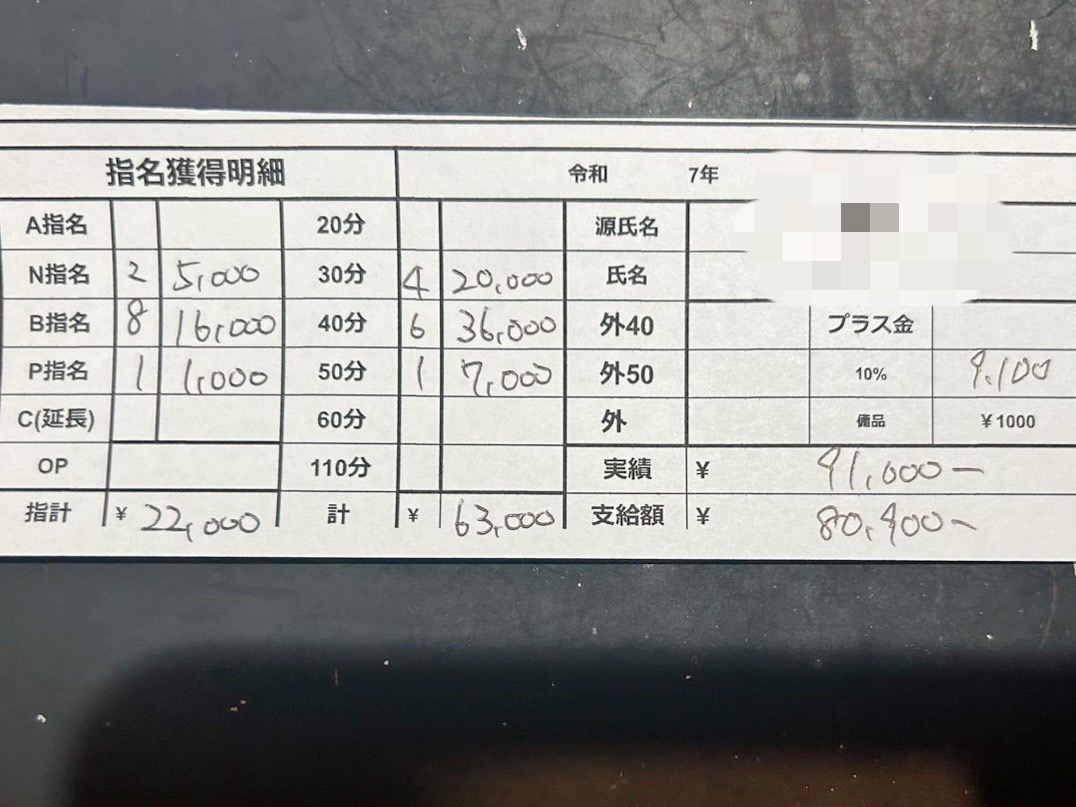 指名獲得明細 令和 7年
A指名 20分 源氏名
N指名 2 5,000 30分 4 20,000 氏名
B指名 8 16,000 40分 6 36,000 外40 プラス金
P指名 1 1,000 50分 1 7,000 外50 10% 9,100
C(延長) 60分 外 備品 ¥1000
OP 110分 実績 ¥ 91,000-
指計 ¥ 22,000 計 ¥ 63,000 支給額 ¥ 80,900-